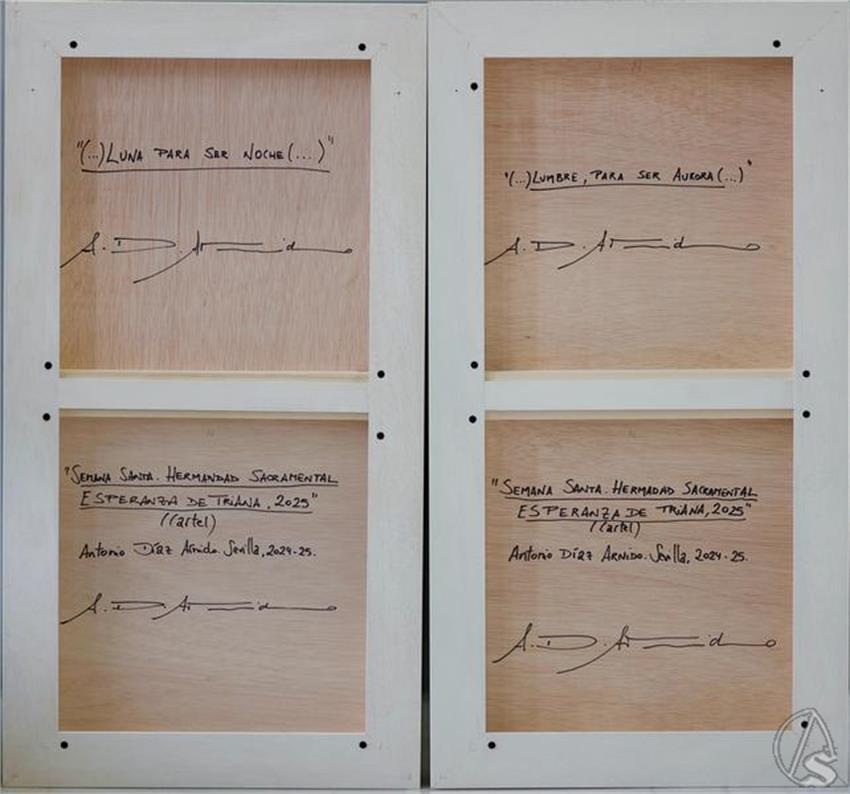 "(...) LUNA PARA SER NOCHE (...)"
A. D. Arnido
"SEMANA SANTA. HERMANDAD SACRAMENTAL
ESPERANZA DE TRIANA, 2025"
(Cartel)
Antonio Díaz Arnido. Sevilla, 2024-25.
A. D. Arnido
"(...) LUMBRE, PARA SER AURORA (...)"
A. D. Arnido
"SEMANA SANTA. HERMADAD SACRAMENTAL
ESPERANZA DE TRIANA, 2025"
(Cartel)
Antonio Díaz ARNIDO. Sevilla, 2024-25.
A. D. Arnido